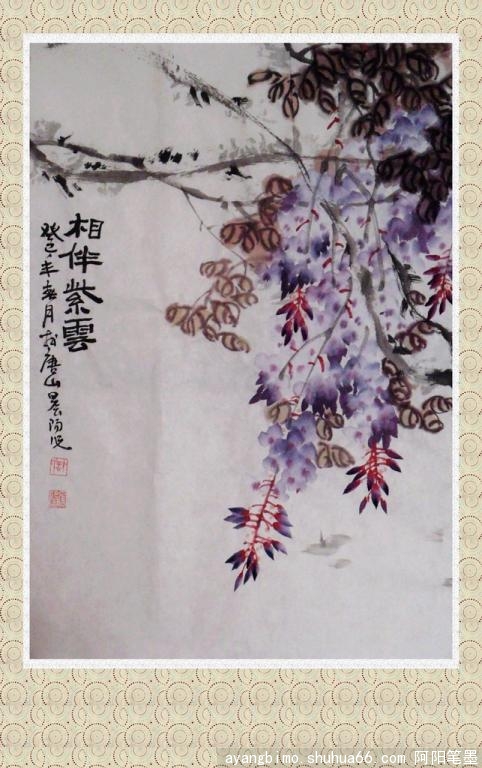 相伴紫雲
癸巳年春月於唐山晨陽
ayangbimo.shuhua66.com 阿阳笔墨